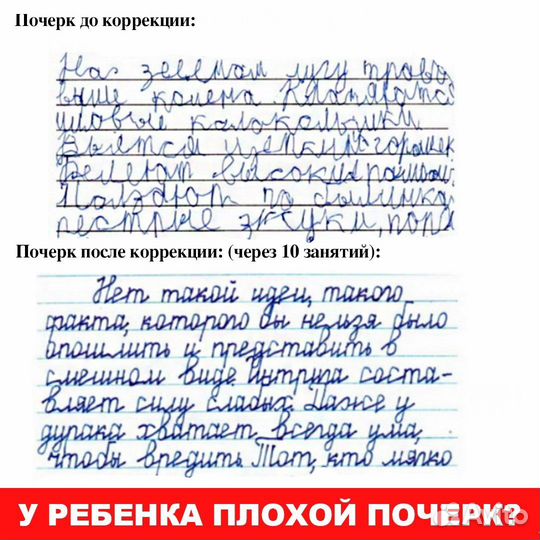 Почерк до коррекции:
На зеленом лугу трава
выше колена.
лиловые колокольчики
Вьется цепкий горошек
Белеют высокие ромашки
Ползают по былинка
пестрые жуки, пора
Почерк после коррекции: (через 10 занятий):
Нет такой идеи, такого
факта, которого бы нельзя было
опошлить и представить в
смешном виде. Интрига соста-
вляет силу слабых. Даже у
дурака хватает всегда ума,
чтобы вредить. Тот, кто мягко
У РЕБЕНКА ПЛОХОЙ ПОЧЕРК?
Avito